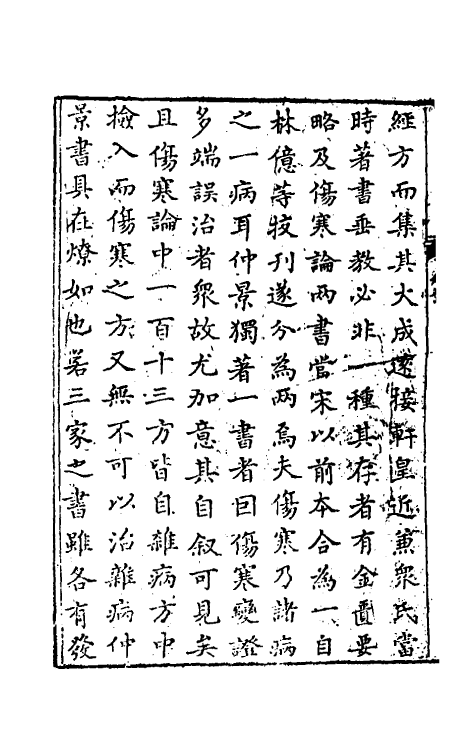 經方而集其大成遠接軒皇近兼衆氏當
時著書垂教必非一種其存者有金匱要
略及傷寒論兩書當宋以前本合為一自
林億等校刊遂分為兩焉夫傷寒乃諸病
之一病耳仲景獨著一書者因傷寒變證
多端誤治者衆故尤加意其自叙可見矣
且傷寒論中一百十三方皆自雜病方中
檢入而傷寒之方又無不可以治雜病仲
景書具在燎如也若三家之書雖各有發